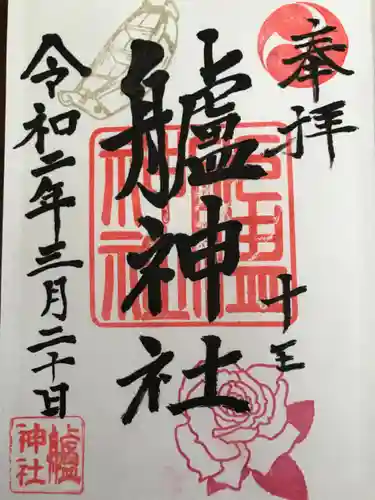 奉拝
十王
艫神社
令和二年三月二十日
艫
神社
艫
神社